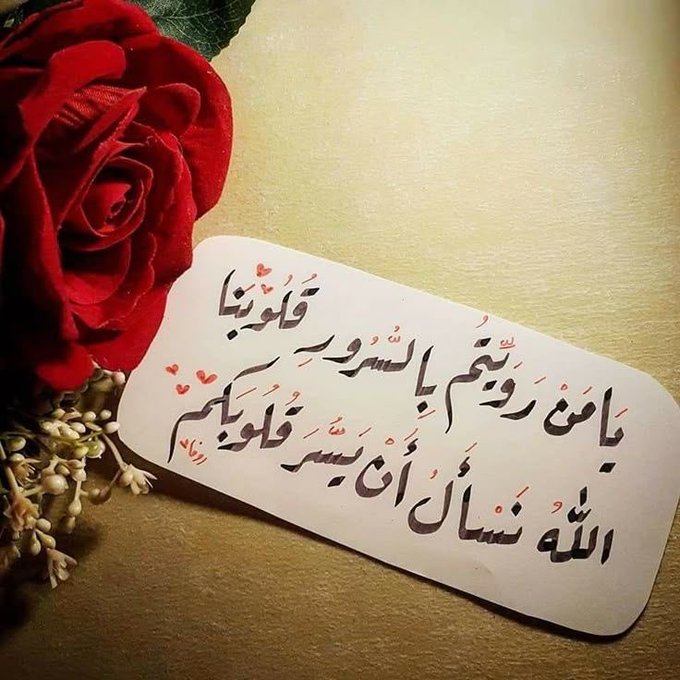 يَا مَنْ رَوَيَّتُم بِالسُّرُورِ قُلُوبَنَا
اللهُ نَسْأَلُ أَنْ يَسُّرَ قُلُوبَكُمْ